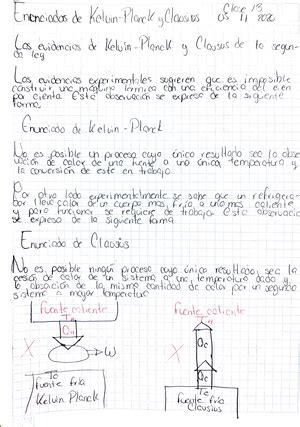 Enunciados de Kelvin-Planck y Clausius
Clase 13
05 11 2020
Los evidencias de Kelvin-Planck y Clausus de la segun
da ley
Los evidencias experimentales sugieren que es imposible
construir una máquina térmica con una eficiencia del cien
por ciento. Esta observación se expresa de la siguiente
forma.
Enunciado de Kelvin-Planck
No es posible un proceso cuyo único resultado sea la absor
ción de calor de una fuente a una única temperatura y
la conversión de este en trabajo.
Por otro lado experimentalmente se sabe que un refrigera
dor lleva calor de un cuerpo más frío a uno más caliente
y para funcionar se requiere de trabajo. Esta observación
se expresa de la siguiente forma.
Enunciado de Clausius
No es posible ningún proceso cuyo único resultado sea la
cesión de calor de un sistema a una temperatura dada y
la absorción de la misma cantidad de calor por un segundo
sistema a mayor temperatura
fuente caliente
fuente caliente
W
Tc
fuente fría
Kelvin Planck
Qc
Qc
Tc
fuente fría
Clausius